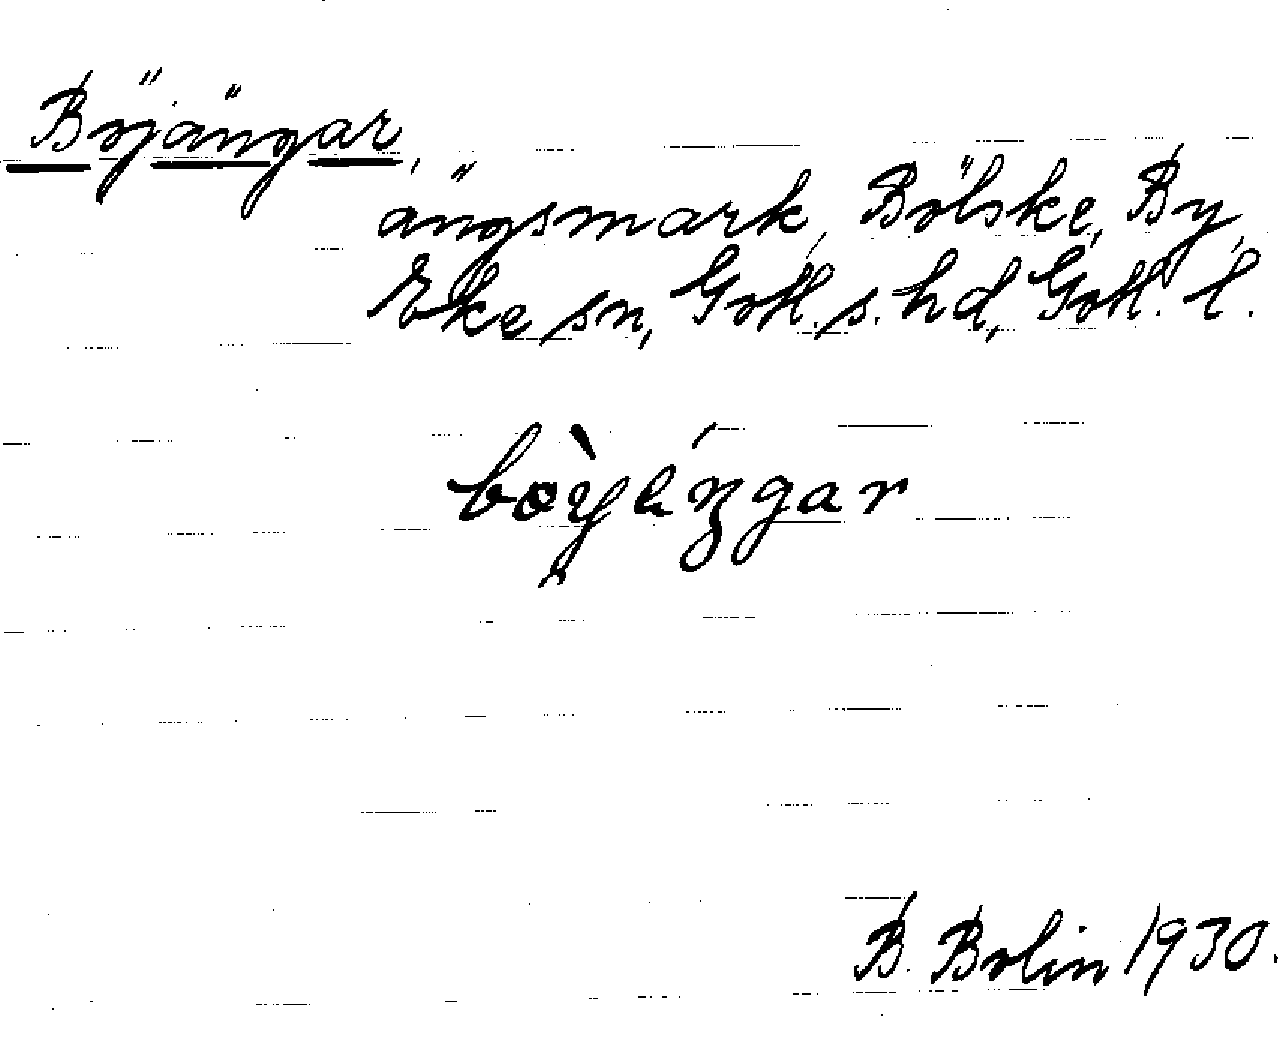 Böjängar,
ängsmark, Bölske, By,
Eke sn, Gotl. s. hd, Gotl. l.
B. Bolin 1930.